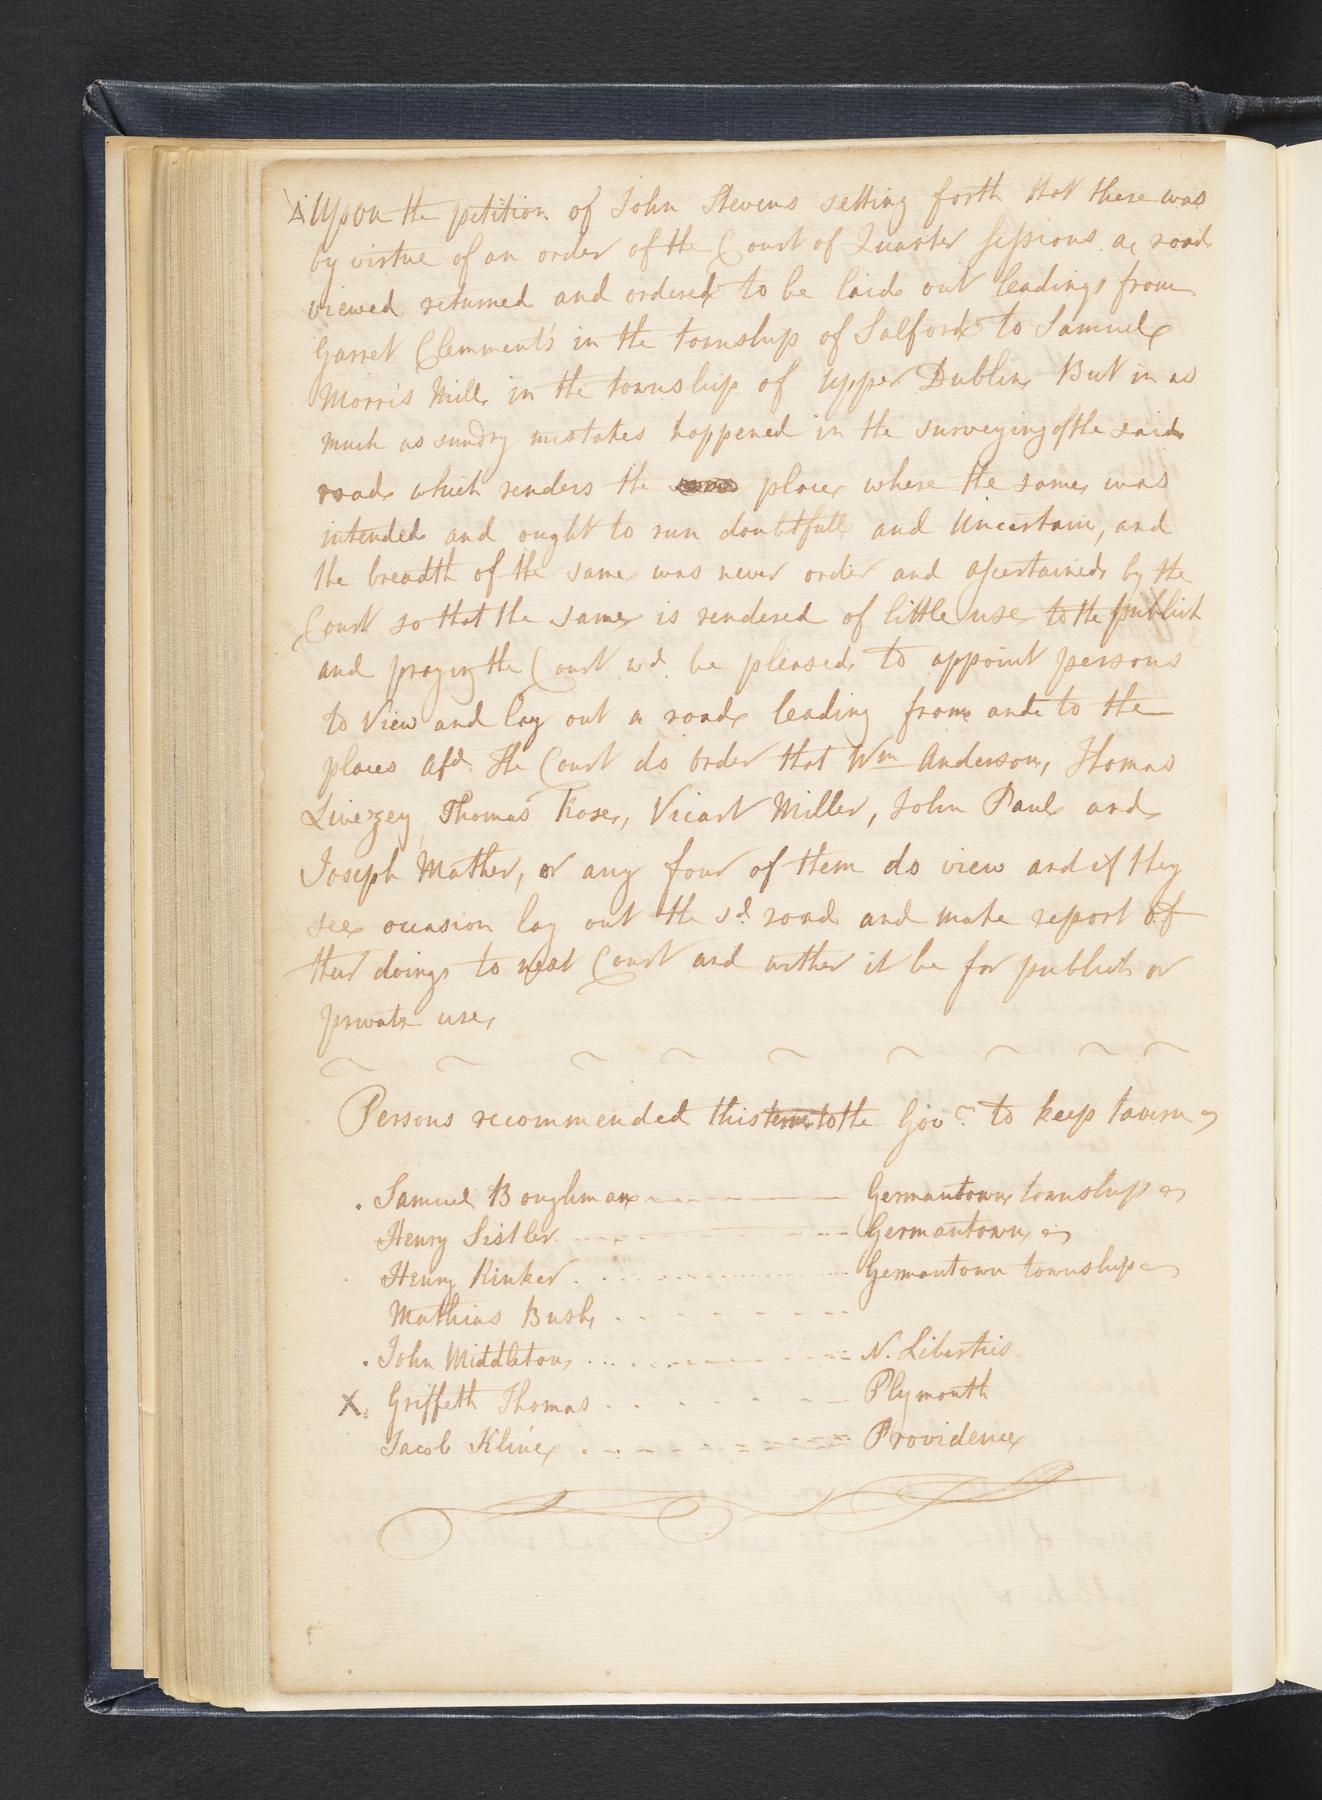 Upon the petition of John Stevens setting forth that there was
by virtue of an order of the Court of Quarter Sessions a road
viewed returned and ordered to be laid out leading from
Garret Clemment's in the township of Salford to Samuel
Morris Mill in the township of Upper Dublin But in as
much as sundry mistakes happened in the surveying of the said
road which renders the place where the same was
intended and ought to run doubtfull and Uncertain, and
the breadth of the same was never order and assertained by the
Court so that the same is rendered of little use to the publick
and praying the Court wd. be pleased to appoint persons
to View and lay out a road leading from and to the
places Afd. The Court do order that Wm Anderson, Thomas
Livezey Thomas Rose, Vicart Miller, John Paul and
Joseph Mather, or any four of them do view and if they
see occasion lay out the sd. road and make report of
their doings to next Court and wither it be for publick or
private use
Persons recommended this term to the Govr. to keep tavern
Samuel Boughman Germantown township
Henry Sistler Germantown
Henry Rinker Germantown township
Mathias Bush
John Middleton N. Liberties
X Griffeth Thomas Plymouth
Jacob Kline Providence